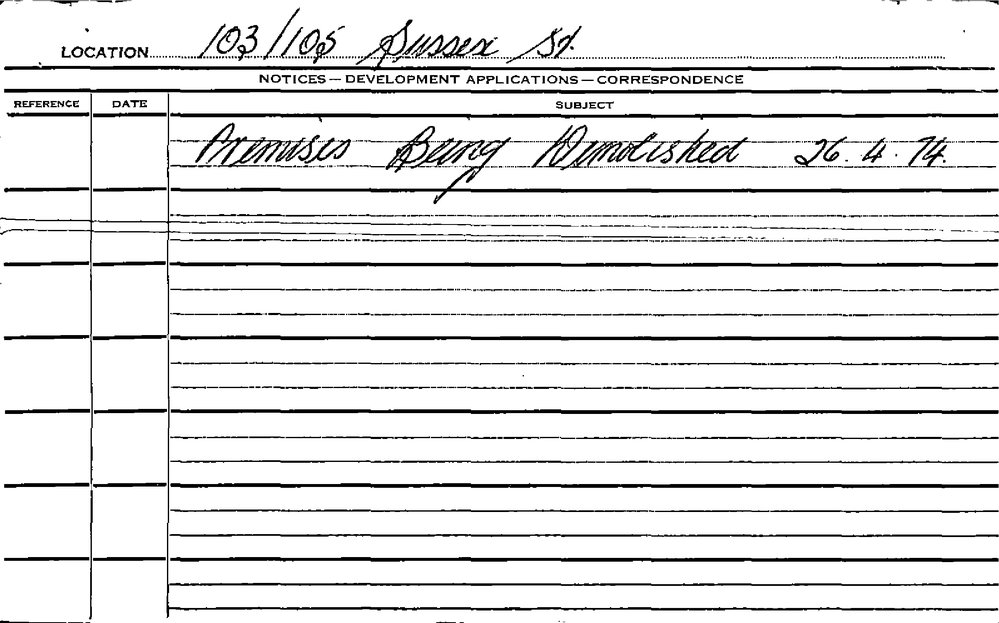 LOCATION 103/105 Sussex St.
NOTICES — DEVELOPMENT APPLICATIONS — CORRESPONDENCE
REFERENCE DATE SUBJECT
Premises Being Demolished 26.4.74.